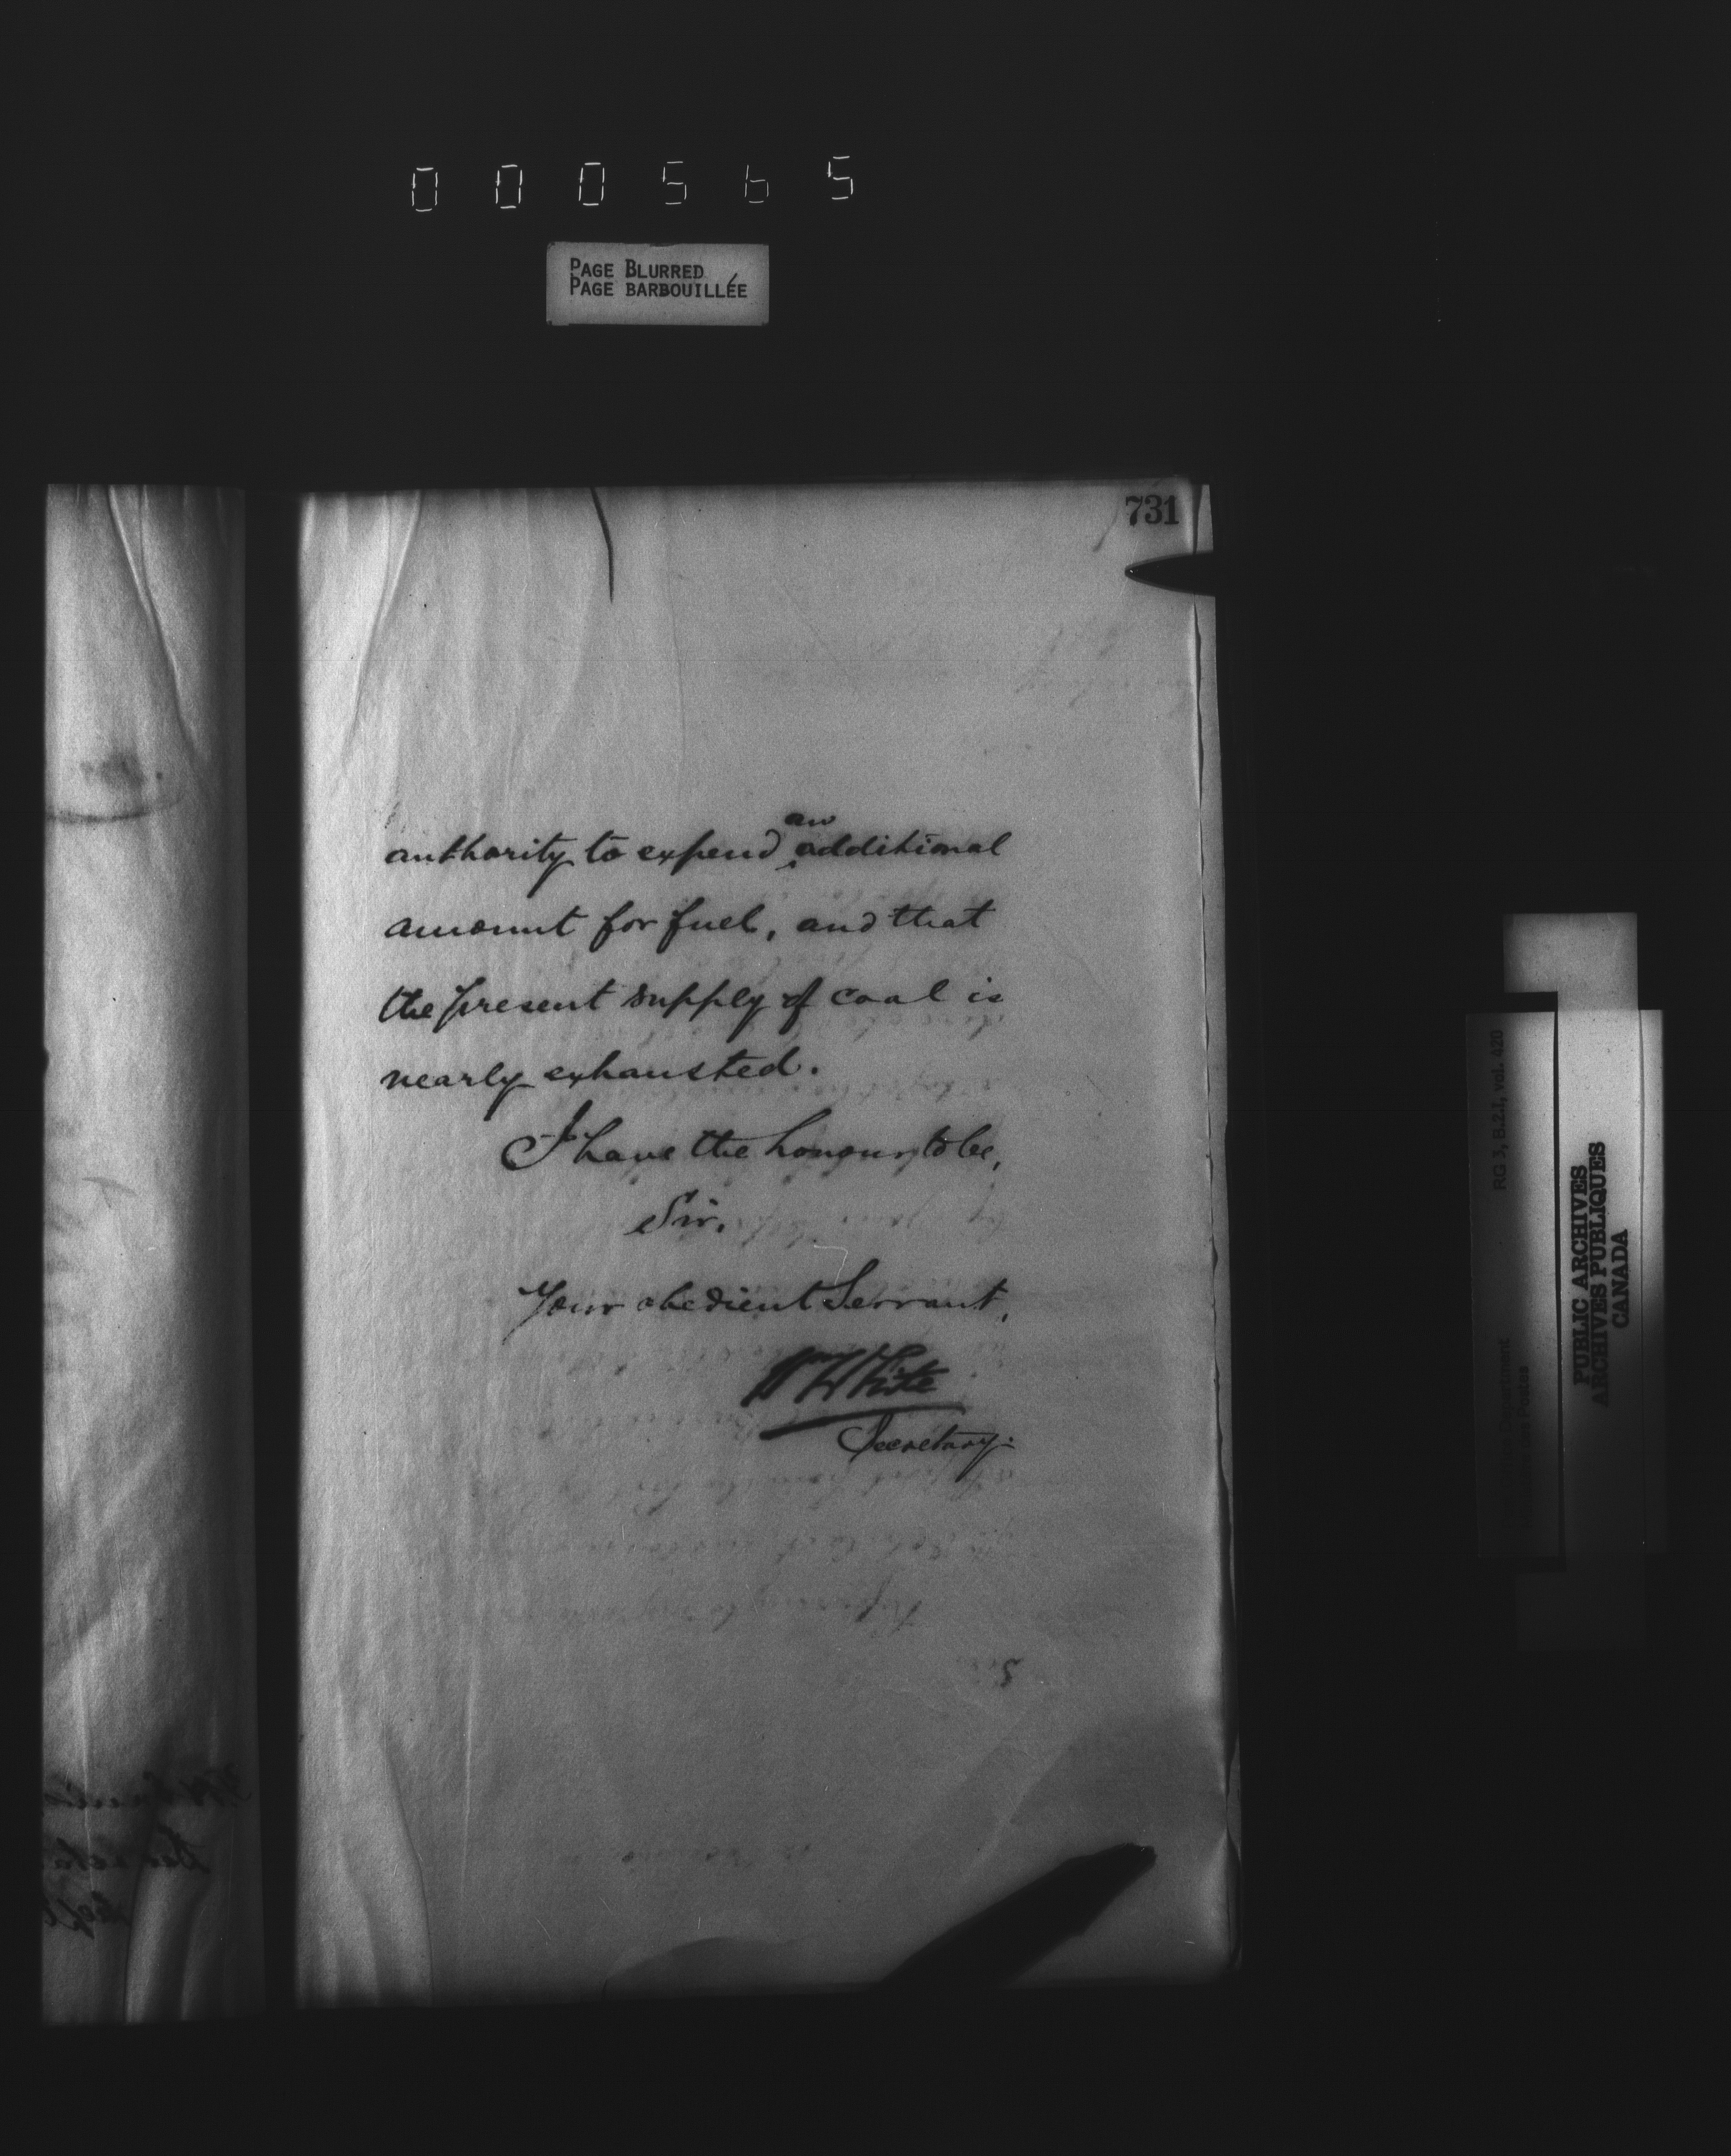 000565
PAGE BLURRED
PAGE BARBOUILLÉE
731
authority to expend an additional
amount for fuel, and that
the present supply of coal is
nearly exhausted.
I have the honour to be,
Sir,
Your obedient Servant,
Wm White
Secretary.
RG 3, B.2.1, vol. 420
PUBLIC ARCHIVES
ARCHIVES PUBLIQUES
CANADA